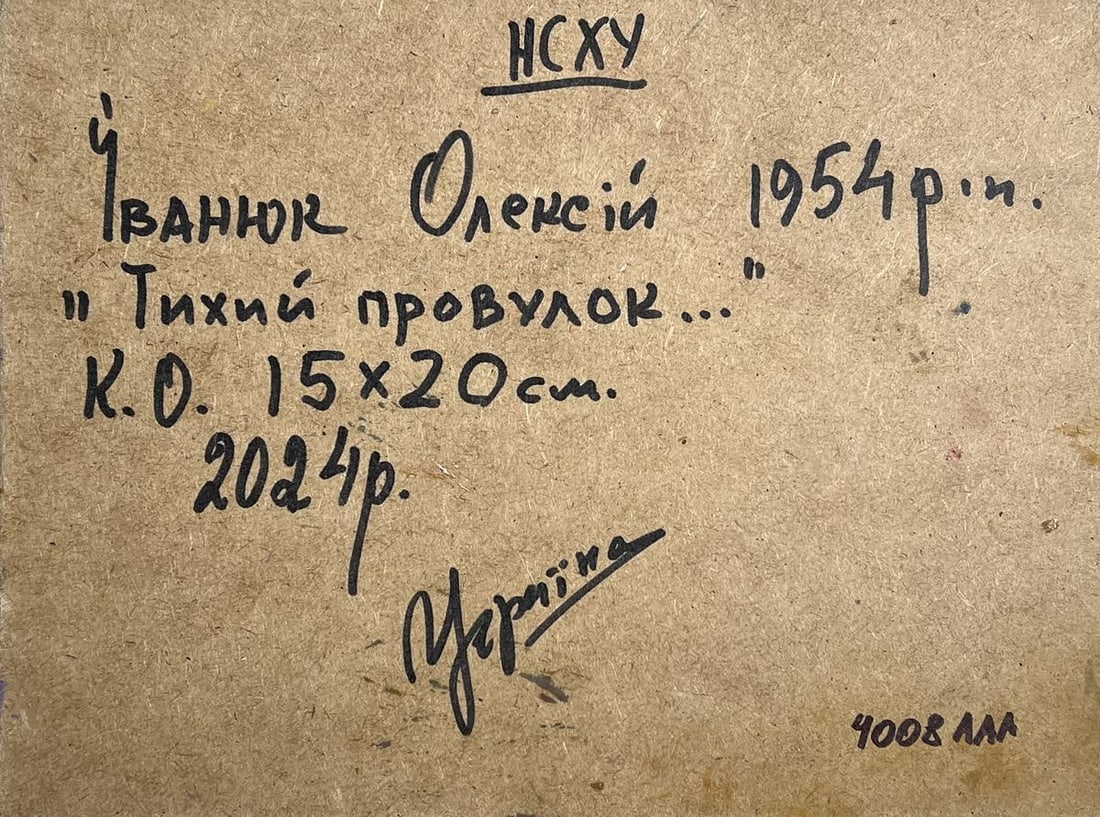 НСХУ
Іванюк Олексій 1954 р.н.
"Тихий провулок..."
К.О. 15×20 см.
2024 р.
Україна
4008 ААА